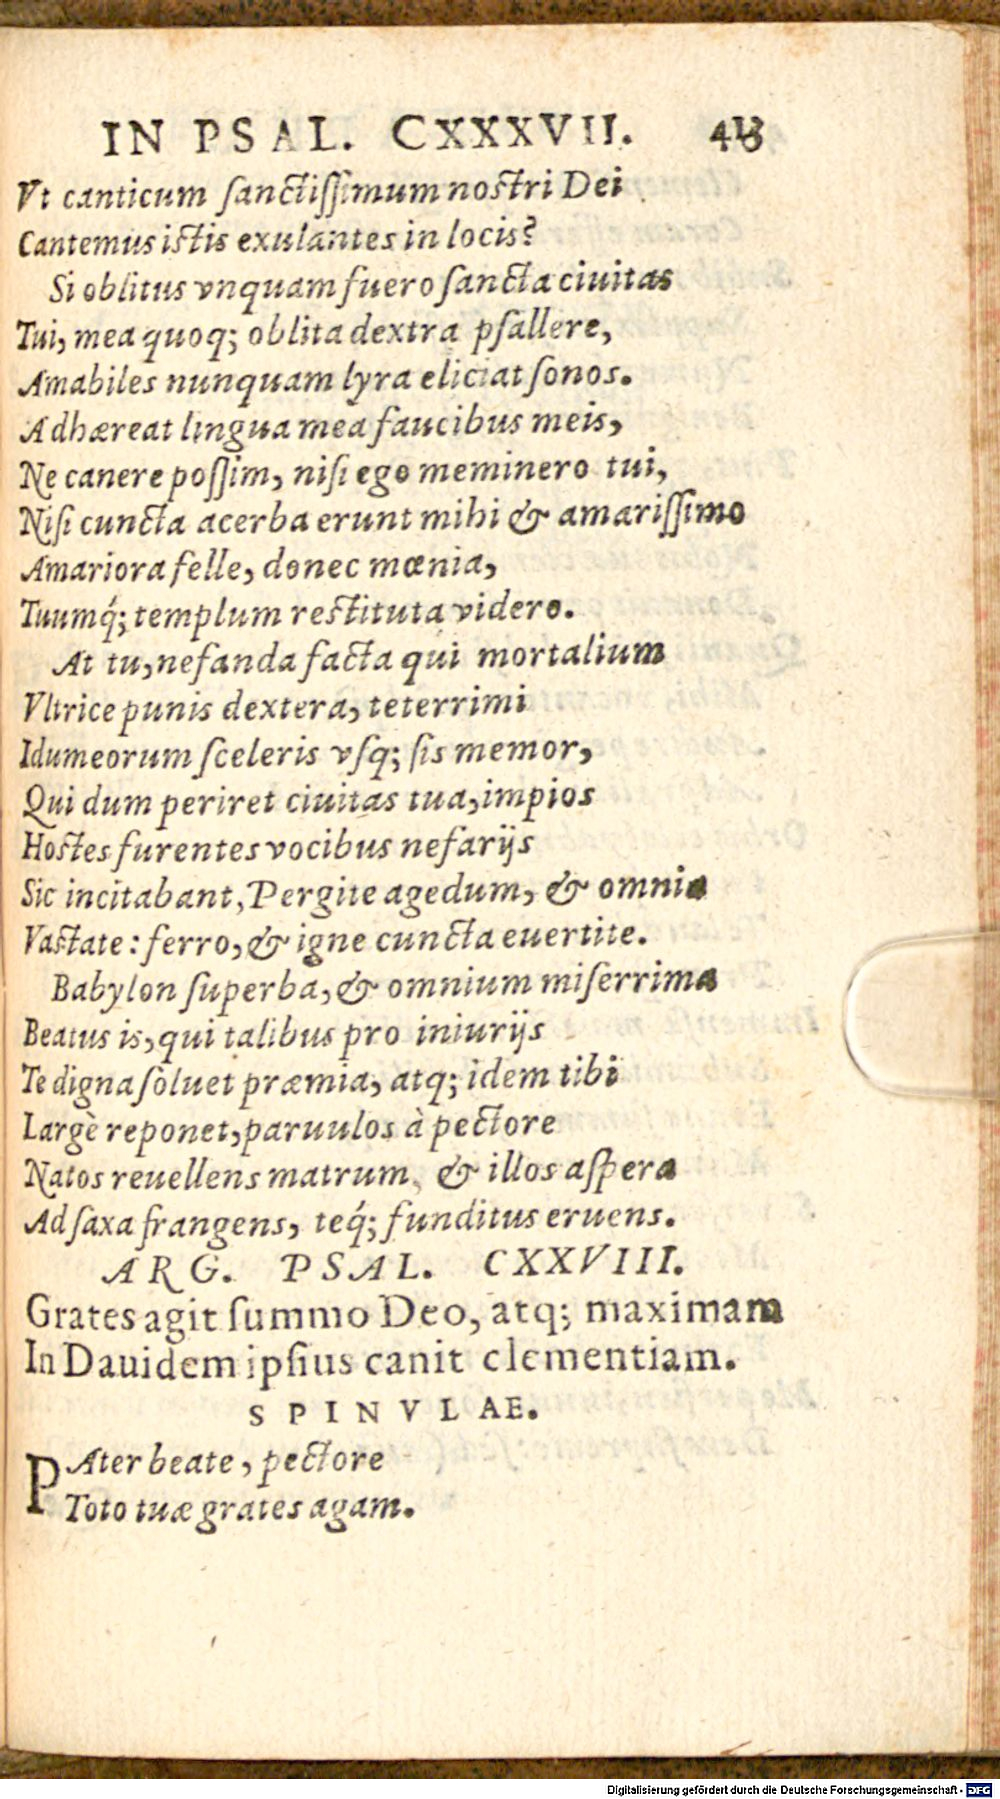 IN PSAL. CXXXVII. 413
Vt canticum ſanctiſſimum noſtri Dei
Cantemus iſtis exulantes in locis?
Si oblitus vnquam fuero ſancta ciuitas
Tui, mea quoq; oblita dextra pſallere,
Amabiles nunquam lyra eliciat ſonos.
Adhæreat lingua mea faucibus meis,
Ne canere poſſim, niſi ego meminero tui,
Niſi cuncta acerba erunt mihi & amariſſimo
Amariora felle, donec mœnia,
Tuumq́; templum reſtituta videro.
At tu, nefanda facta qui mortalium
Vltrice punis dextera, teterrimi
Idumeorum ſceleris vſq; ſis memor,
Qui dum periret ciuitas tua, impios
Hoſtes furentes vocibus nefarijs
Sic incitabant, Pergite agedum, & omnia
Vaſtate: ferro, & igne cuncta euertite.
Babylon ſuperba, & omnium miſerrima
Beatus is, qui talibus pro iniurijs
Te digna ſoluet præmia, atq; idem tibi
Largè reponet, paruulos à pectore
Natos reuellens matrum, & illos aſpera
Ad ſaxa frangens, teq́; funditus eruens.
ARG. PSAL. CXXVIII.
Grates agit ſummo Deo, atq; maximam
In Dauidem ipſius canit clementiam.
SPINVLAE.
PAter beate, pectore
Toto tuæ grates agam.
Digitalisierung gefördert durch die Deutsche Forschungsgemeinschaft - DFG